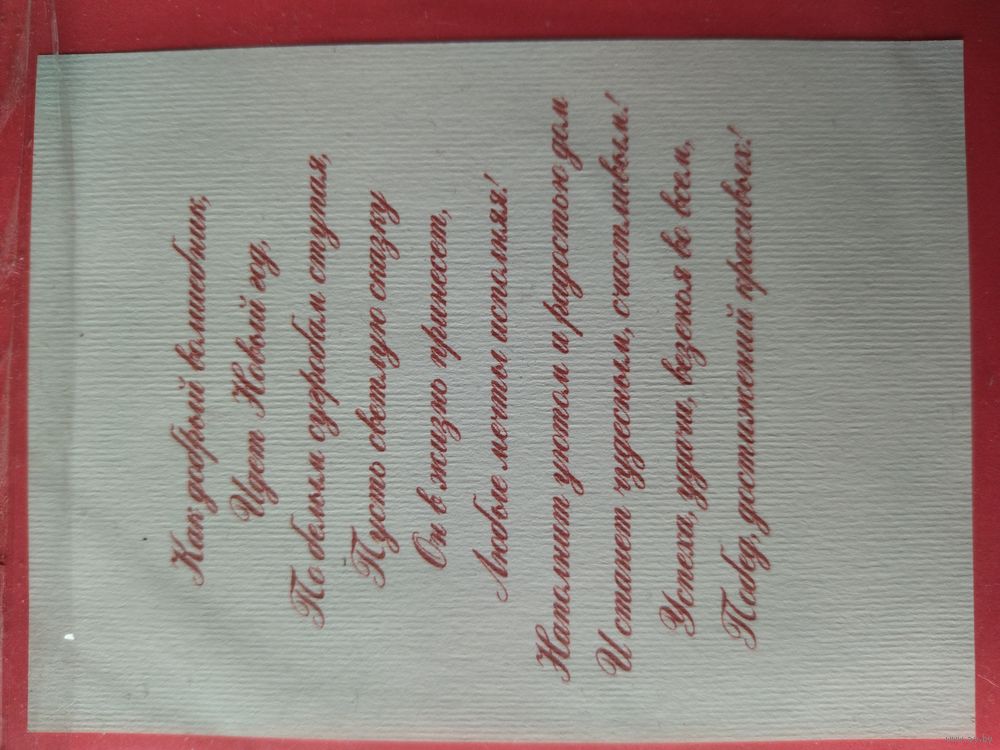 Как добрый волшебник,
Идет Новый год,
По белым сугробам ступая,
Пусть светлую сказку
Он в жизнь принесет,
Любые мечты исполняя!
Наполнит уютом и радостью дом
И станет чудесным, счастливым!
Успеха, удачи, везенья во всем,
Побед, достижений красивых!